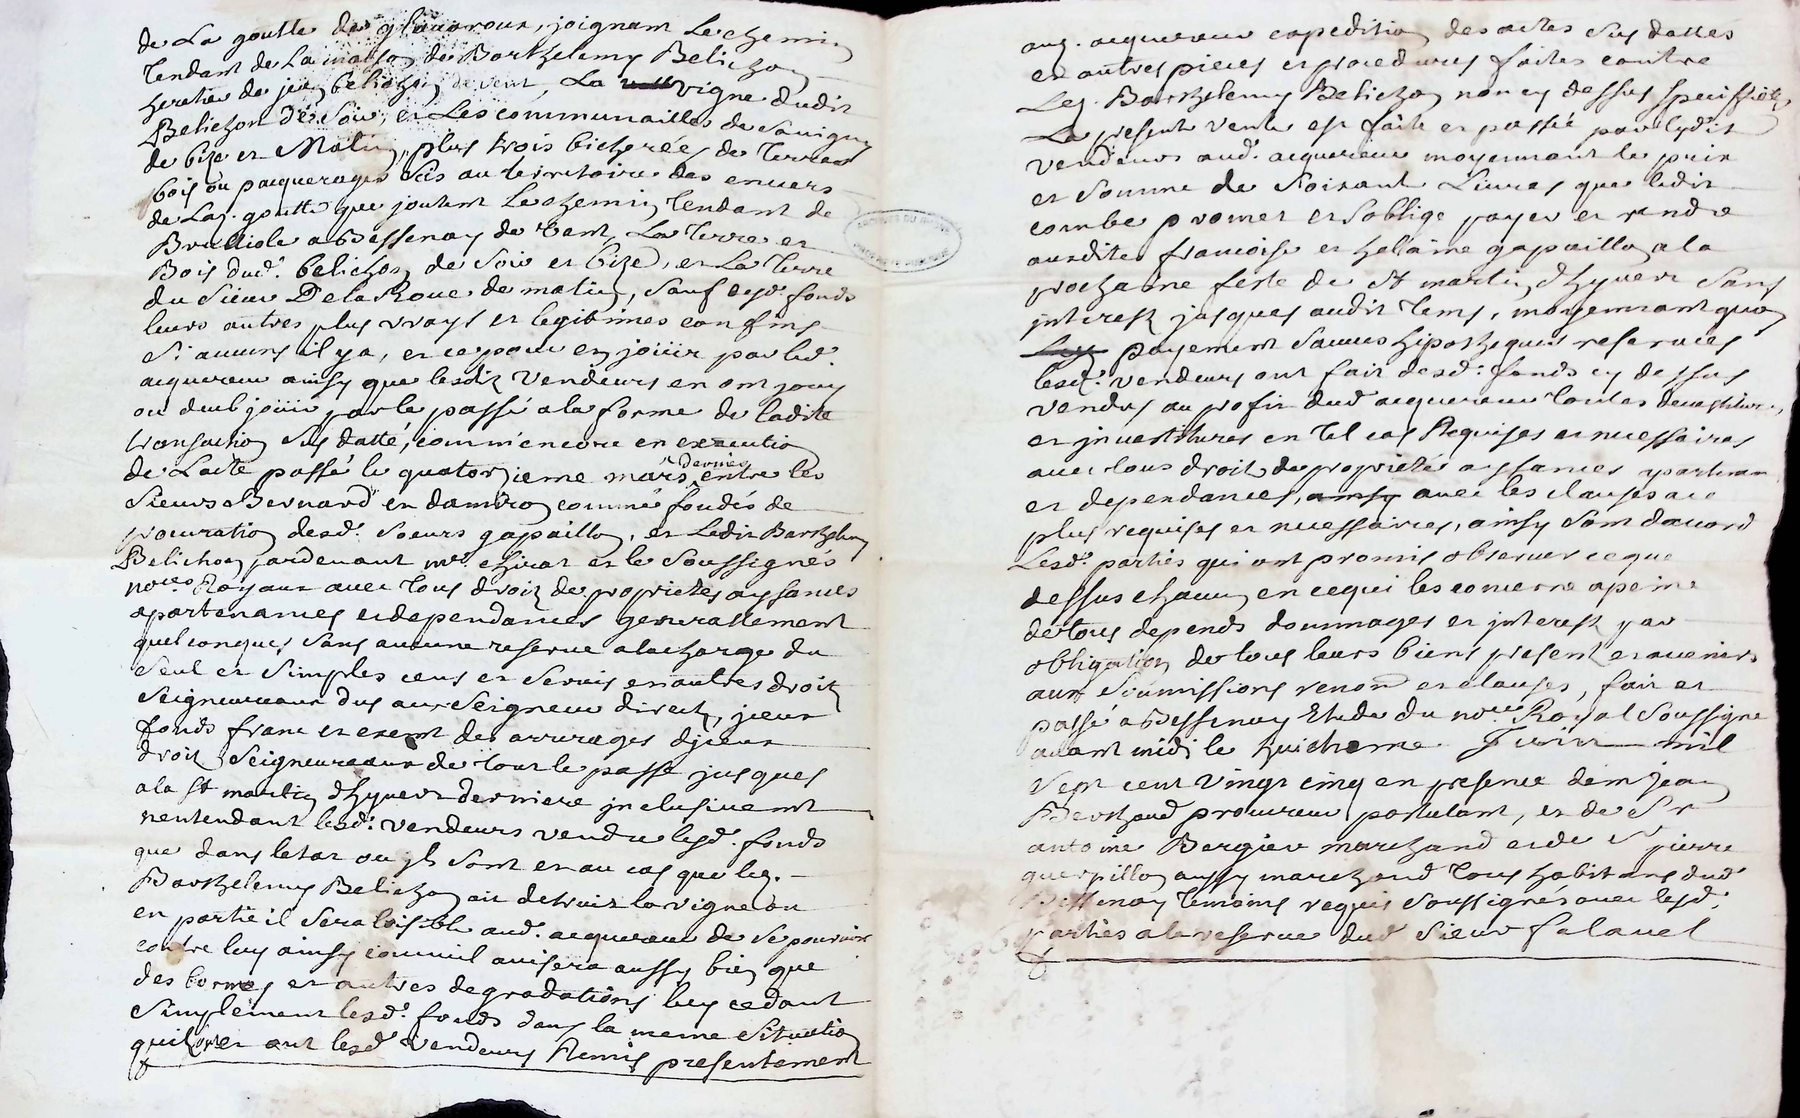 de La goutte de glavaroux, joignant Le chemin
tendant de La maison de Barthelemy Belichon
heretier de jean belichon de vent, La vigne dudit
Belichon de Soir, et Les communailles de Savigny
de bize et Matin, plus trois bicherées de terres
bois ou pacquerages Scis au territoire des envers
de Lad. goutte que joutent Le chemin tendant de
Brulliole a Bessenay de vent, La terre et
Bois dud. belichon de Soir et bize, et La terre
du Sieur De la Roue de matin, Sauf desd. fonds
leurs autres plus vrays et legitimes confins
Si aucuns il y a, et ce pour en jouir par led.
acquereur ainsy que lesdits Vendeurs en ont jouy
ou deub jouir par le passé a la forme de ladite
transaction Sus datté, comm'encore en execution
de L'acte passé le quatorzieme mars dernier entre les
Sieurs Bernard et dambron comme fondés de
procuration desd. Soeurs gapaillon, et Ledit Barthelemy
Belichon pardevant me. chirat et le Soussignés
nores. Royaux avec tous droits de proprietes aysances
apartenances et dependances generallement
quelconques Sans aucune reserve a la charge du
Seul et Simples cens et Servis et autres droits
Seigneuriaux dus aux Seigneurs directs, jceux
fonds franc et exempt des arrerages d'jceux
droits Seigneuriaux de tout le passé jusques
a la St martin d'hyver derniere jnclusivement
n'entendant lesd. vendeurs vendre lesd. fonds
que dans letat ou jls Sont et au cas que led.
Barthelemy Belichon ait detruit la vigne ou
en partie il Sera loisible aud. acquereur de Se pourvoir
contre luy ainsy comm'il avisera aussy bien que
des bornes et autres degradations luy cedant
Simplement lesd. fonds dans la meme Situation
quils et ont lesd. Vendeurs Remis presentement
aud. acquereur expedition des actes Sus dattes
et autres pieces et procedures faites contre
Led. Barthelemy Belichon non cy dessus specifiés
La presente vente est faite et passée par lesdits
vendeurs aud. acquereur moyennant le prix
et Somme de Soixante Livres que ledit
combe promet et S'obblige payer et rendre
ausdites francoise et helaine gapaillon a la
prochaine feste de St martin d'hyver Sans
jnterest jusques audit tems, moyennant quoy
payement Sauves hipotheques reservées
lesd. vendeurs ont fait desd. fonds cy dessus
vendus au profit dud. acquereur toutes devestitures
et jnvestitures en tel cas Requises et necessaires
avec tous droits de proprietés aysances
et dependances, avec les clauses a ce
plus requises et necessaires, ainsy Sont d'acord
Lesd. parties qui ont promis observer ce que
dessus chacun en ce qui les concerne a peine
de tous depends dommages et jnterest par
obligation de tous leurs biens present et avenirs
aux Soumissions renon et clauses, fait et
passé a Bessenay Etude du nore. Royal Soussigné
avant midi le huictieme Juin mil
Sept cent Vingt cinq en presence de me jean
Berthaud procureur postulant, et de Sr
antoine Bergier marchand et de Sr pierre
guerpillon aussy marchand tous habitans dud.
Bessenay temoins requis Soussignés avec lesd.
parties a la reserve dud. Sieur